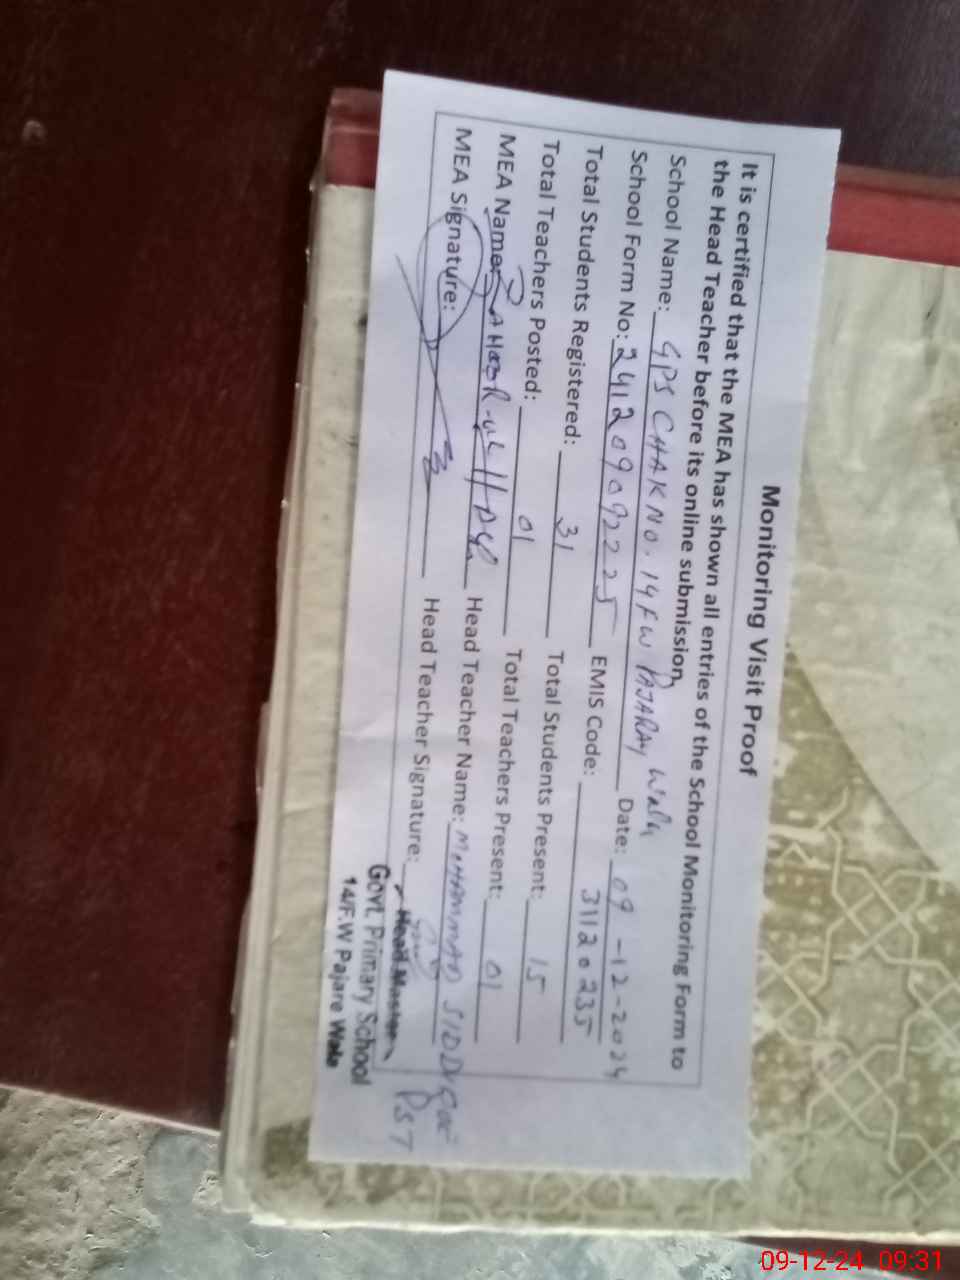 Monitoring Visit Proof
It is certified that the MEA has shown all entries of the School Monitoring Form to
the Head Teacher before its online submission.
School Name: GPS CHAK NO. 14 FW PAJARAY Wala
School Form No: 2412090922 25 Date: 09-12-2024
Total Students Registered: 31 EMIS Code: 31120235
Total Teachers Posted: 01 Total Students Present: 15
MEA Name: Total Teachers Present: 01
MEA Signature: Head Teacher Name: MOHAMMAD SIDDIQUE PST
Head Teacher Signature:
Head Master
Govt. Primary School
14/F.W Pajare Wala
09-12-24 09:31